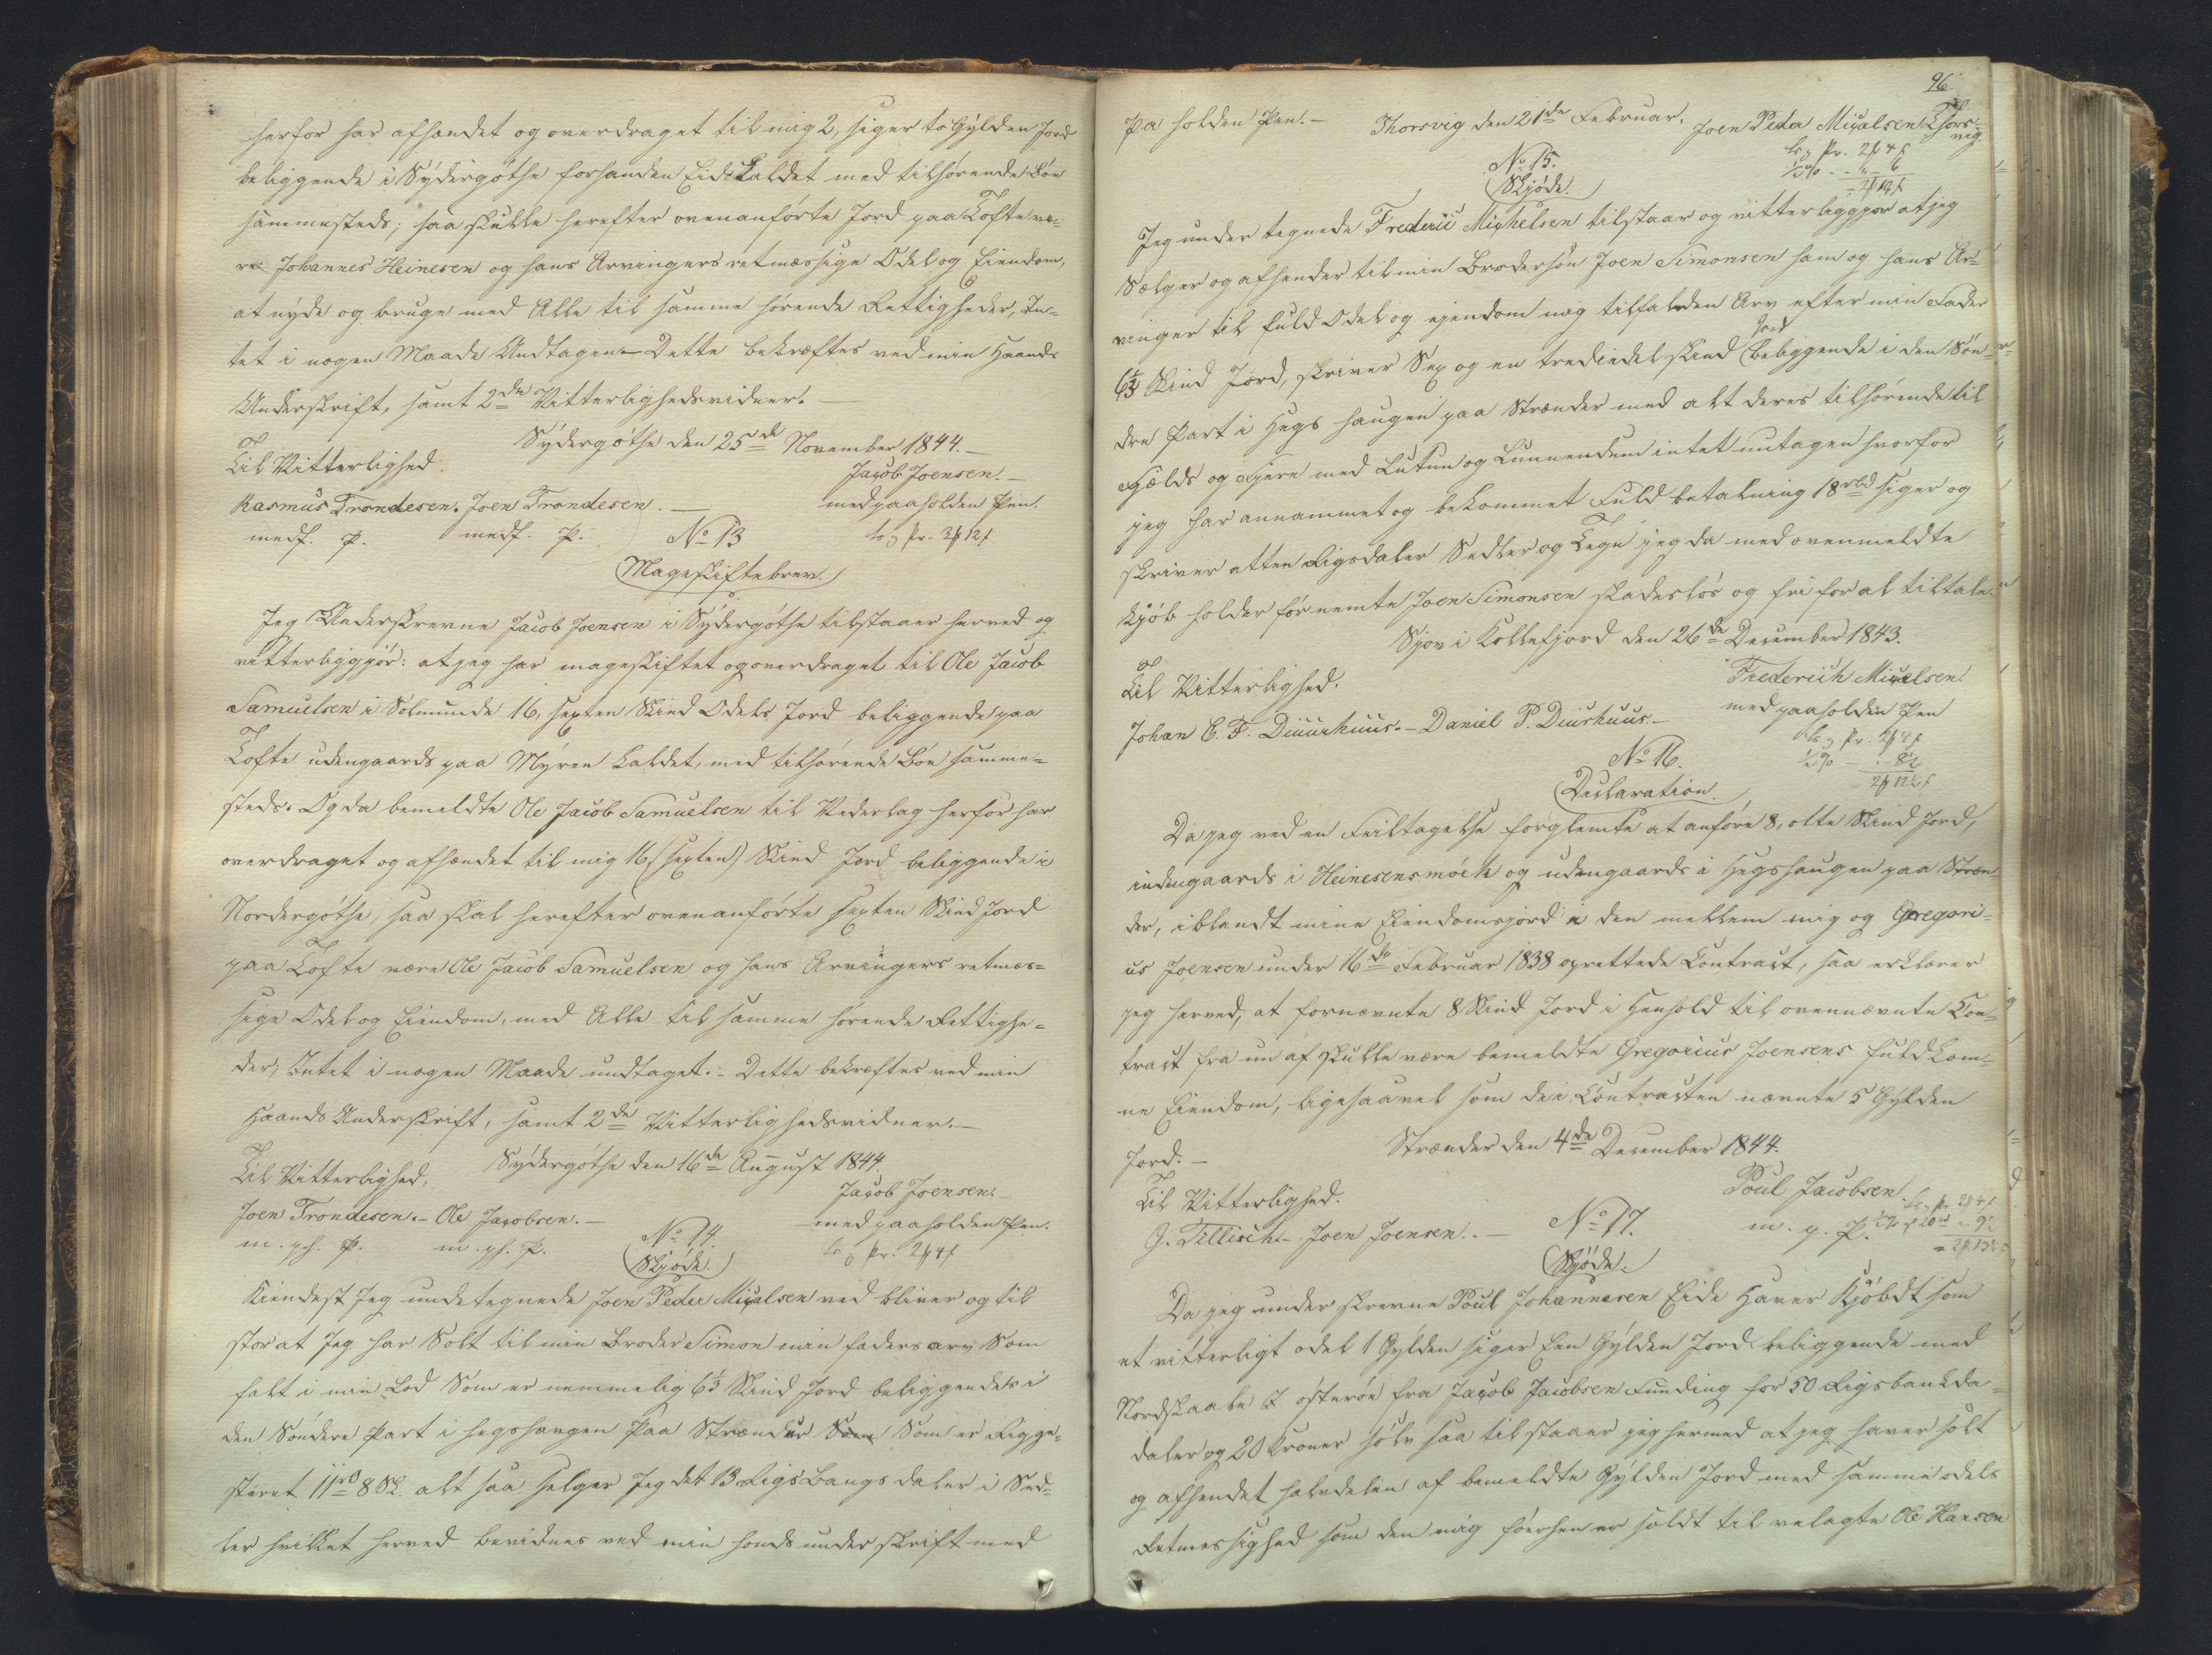 herfor har afhændet og overdraget til mig 2, siger to Gylden Jord
beliggende i Sydergøthe forhanden Eide kaldet med tilhørende Bøn
sammesteds; saa skulle herefter ovenanførte Jord paa Tofte væ=
re Johannes Heinesen og hans Arvingers retmæssige Odel og Eiendom,
at nyde og bruge med Alle til samme hørende Rettigheder, In=
tet i nogen Maade Undtagen. Dette bekræftes ved min Haands
Underskrift, samt 2de Vitterlighedsvidner. —
Sydergøthe den 25de November 1844. —
Til Vitterlighed.
Jacob Joensen. —
Rasmus Trondesen. Joen Trondesen. —
med paaholden Pen.
medf. P. medf. P.
No 13
Mageskiftebrev.
Jeg Underskrevne Jacob Joensen i Sydergøthe tilstaaer herved og
vitterliggjør: at jeg har mageskiftet og overdraget til Ole Jacob
Samuelsen i Solmunde 16, sexten Skind Odels Jord beliggende paa
Tofte udengaards paa Myren kaldet, med tilhørende Bøn samme=
steds. Og da bemeldte Ole Jacob Samuelsen til Vederlag herfor har
overdraget og afhændet til mig 16 (sexten) Skind Jord beliggende i
Nordergøthe, saa skal herefter ovenanførte sexten Skind Jord
paa Tofte være Ole Jacob Samuelsen og hans Arvingers retmæs=
sige Odel og Eiendom, med Alle til samme hørende Rettighe=
der; Intet i nogen Maade undtaget. – Dette bekræftes ved min
Haands Underskrift, samt 2de Vitterlighedsvidner. —
Sydergøthe den 16de August 1844.
Til Vitterlighed.
Jacob Joensen. —
Joen Trondesen. – Ole Jacobsen. —
med paaholden Pen.
m. ph. P. m. ph. P.
No 14.
Skjøde.
Kiendest Jeg undetegnede Joen Peder Micalsen ved bliver og til
stor at Jeg har Solt til min Broder Simon min faders arv Som
falt i min Lod Som er nemmelig 6 1/3 Skind Jord beliggendes i
den Søndere Part i hegshaugen paa Strænder Som Som er Regge=
steret 11 rbd 8 Sk. alt saa selger Jeg det 13 Rigs Bangs daler i Sed=
ler hvilket herved bevidnes ved min honds under skrift med
96.
paa holden Pen. — Thorsvig den 21de Februar. Joen Peder Micalsen Thors=
vig.
No 15.
Skjøde.
Jeg under tegnede Frederic Michelsen tilstaar og vitterliggjør at jeg
Sælger og afhender til min Brodersøn Joen Simonsen ham og hans Ar=
vinger til fuld Odel og ejendom mig tilfalden Arv efter min Fader
6 1/3 Skind Jord, skriver Sex og en trediedel skind Jord beliggende i den Søn=
dre Part i Hegs haugen paa Strænder med alt deres tilhørende til
Fjelds og Fjere med Lutum og Lunnendum intet undtagen hvorfor
jeg har annammet og bekommet Fuld betalning 18 rbd siger og
skriver atten Rigsdaler Sedler og Tegn jeg da med ovenmeldte
Kjøb holder for nemte Joen Simonsen skadesløs og fri for al tiltale.
Sjov i Kollefjord den 26de December 1843.
Til Vitterlighed.
Frederich Micelsen
med paaholden Pen
Johan C. F. Diuurhuus. – Daniel P. Diurhuus. —
No 16.
Declaration.
Da jeg ved en Feiltagelse forglemte at anføre 8, otte Skind Jord,
indengaards i Heinesensmørk og udengaards i Hegshaugen paa Stræn
der, iblandt mine Eiendomsjord i den mellem mig og Gregori=
us Joensen under 16de Februar 1838 oprettede Contract, saa erklærer
jeg herved, at fornævnte 8 Skind Jord i Henhold til ovennævnte Con=
tract fra nu af skulle være bemeldte Gregorius Joensens fuldkom=
ne Eiendom, ligesaavel som de i Contracten nævnte 5 Gylden
Jord. —
Strænder den 4de December 1844.
Til Vitterlighed.
Poul Jacobsen.
G. Tillisch. – Joen Joensen. . —
m. p. P.
No 17.
Skjøde.
Da jeg under skrevne Poul Johannesen Eide Haver Kjøbdt som
et vitterligt odel 1 Gylden siger Een Gylden Jord beliggende med
Nordskaale i østerøe fra Jacob Jacobsen Funding for 50 Rigsbankda=
daler og 20 Kroner sølv saa tilstaaer jeg hermed at jeg haver solt
og afhendet halvdelen af bemeldte Gylden Jord med samme odels
Retmessighed som den mig foerhen er soldt til velagte Ole Hansen